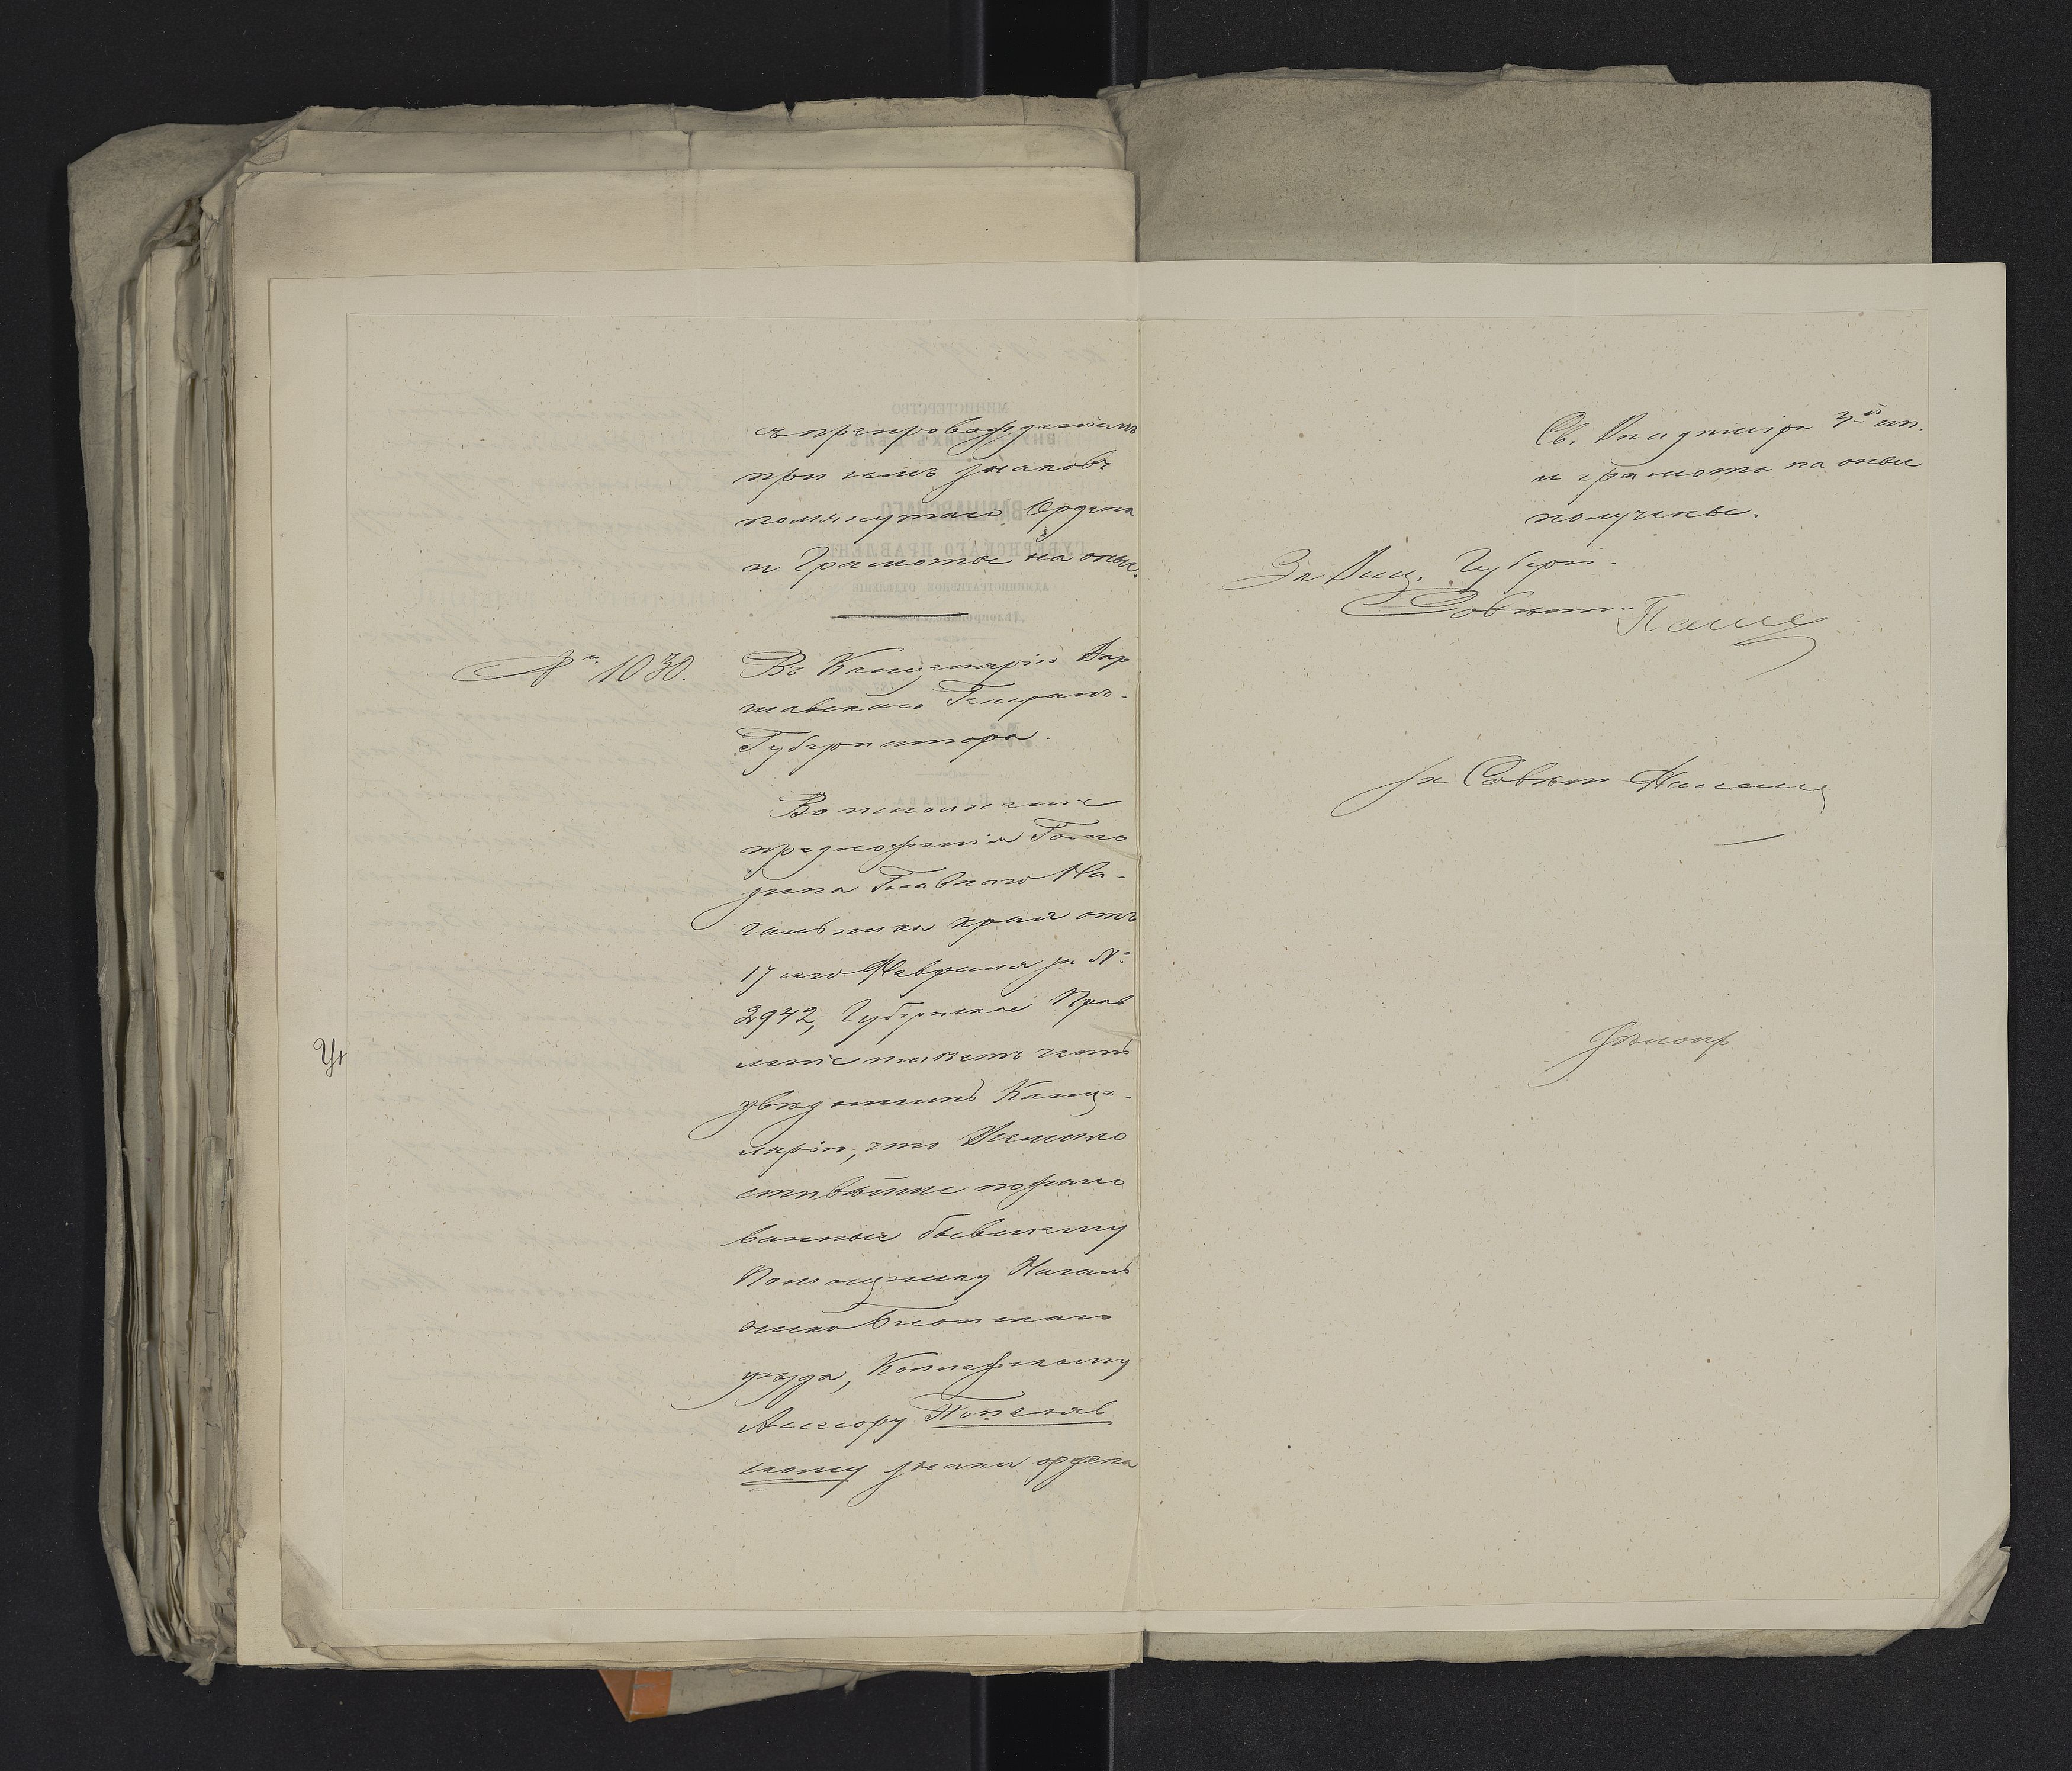 съ препровожденіемъ
при семъ знаковъ
помянутаго Ордена
и Грамоты на оные.
№ 1030.
Въ Канцелярію Вар
шавскаго Генералъ-
Губернатора.
Во исполненіе
предложенія Госпо
дина Главнаго На-
чальника края отъ
17 сего Февраля за №
2942, Губернское Прав
леніе имѣетъ честь
увѣдомить Канце-
лярію, что Всемило
стивѣйше пожало
ванные бывшему
Помощнику Началь
ника Блонскаго
уѣзда, Коллежскому
Ассесору Попеляв
скому знаки ордена
Св. Владиміра 4й ст.
и грамота на оные
получены.
За Виц. Губерн.
Совѣтн.
За Совѣтн
Дѣлопр